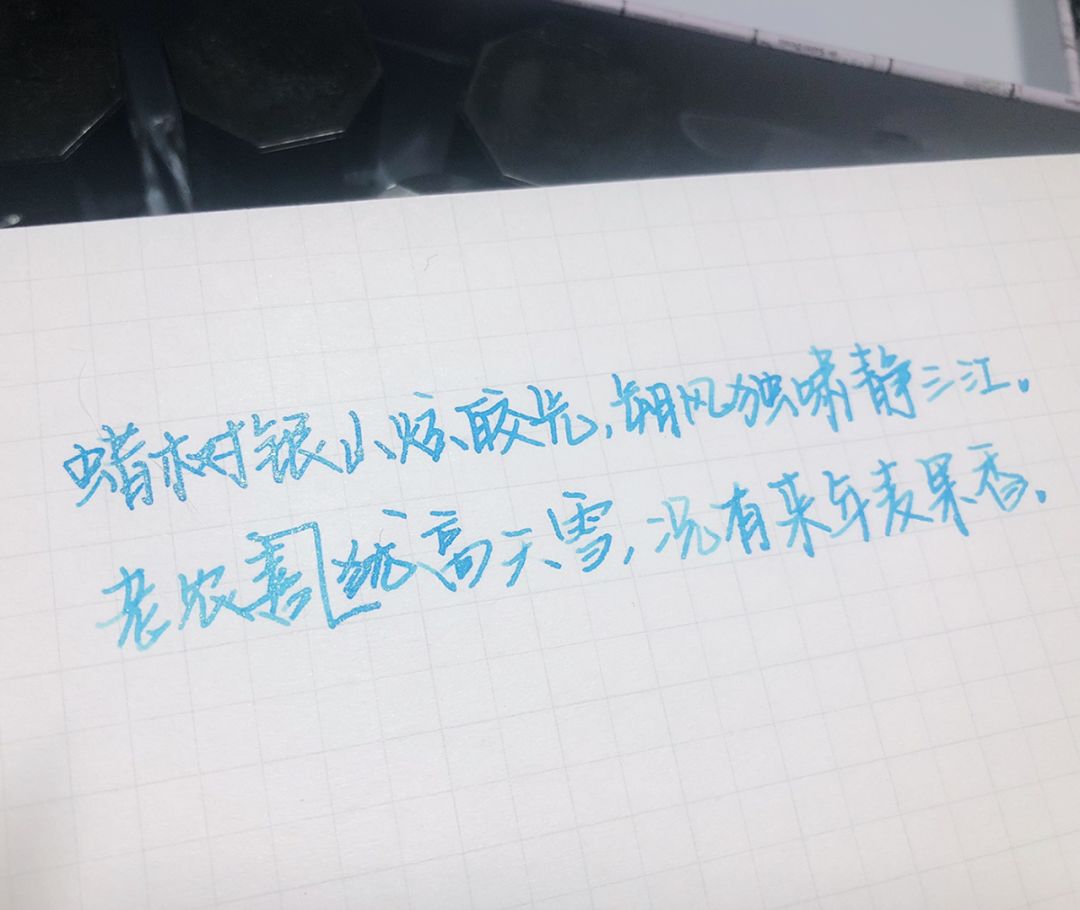 蜡树银山炫皎光，朔风独啸静三江。
老农犁统高天雪，况有来年麦果香。